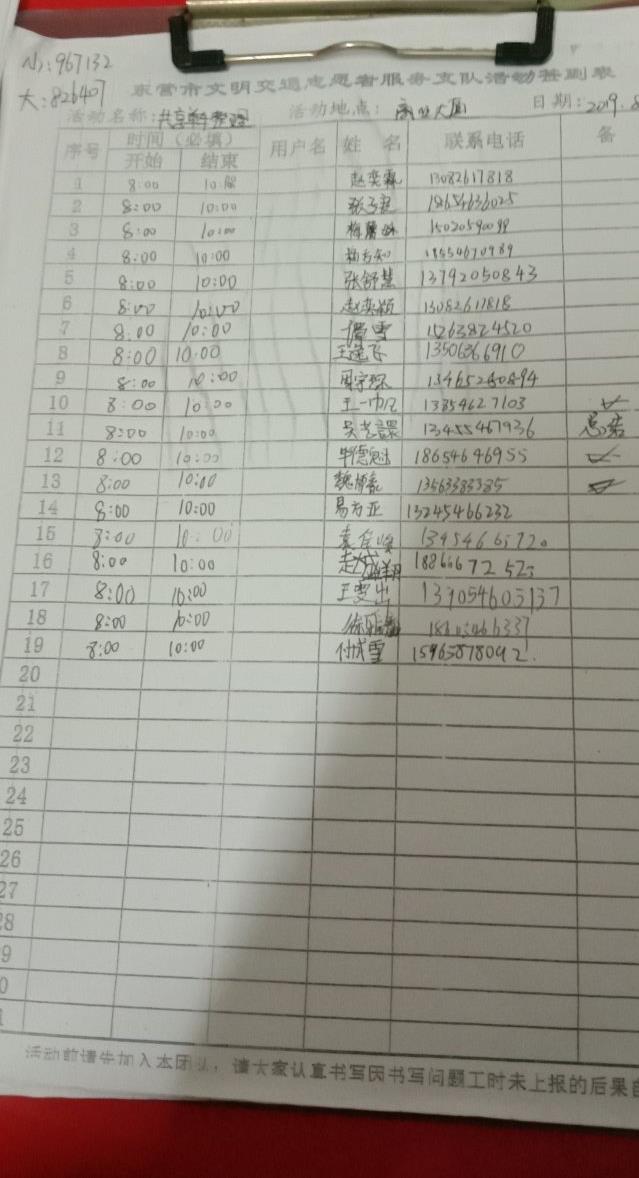 小:967132
大:826407
东营市文明交通志愿者服务支队活动签到表
活动名称:共享单车整理 活动地点: 商业大厦 日期:2019.8
序号 时间(必填) 用户名 姓 名 联系电话 备
开始 结束
1 8:00 10:00 赵奕霖 13082617818
2 8:00 10:00 18654636025
3 8:00 10:00 15020590099
4 8:00 10:00 18554670989
5 8:00 10:00 张舒慧 13792050843
6 8:00 10:00 赵奕颖 13082617818
7 8:00 10:00 15263824520
8 8:00 10:00 王建飞 13506366910
9 8:00 10:00 周宇琛
10 8:00 10:00 王一帆 13854627103
11 8:00 10:00 13455467936 总结
12 8:00 10:00 牛德魁 18654646955
13 8:00 10:00 13563383385
14 8:00 10:00 易方亚 13245466232
15 8:00 10:00
16 8:00 10:00
17 8:00 10:00 139054605137
18 8:00 10:00
19 8:00 10:00 付成雪 15965878092.
20
21
22
23
24
25
26
27
28
9
0
1
活动前请先加入本团队,请大家认真书写因书写问题工时未上报的后果自